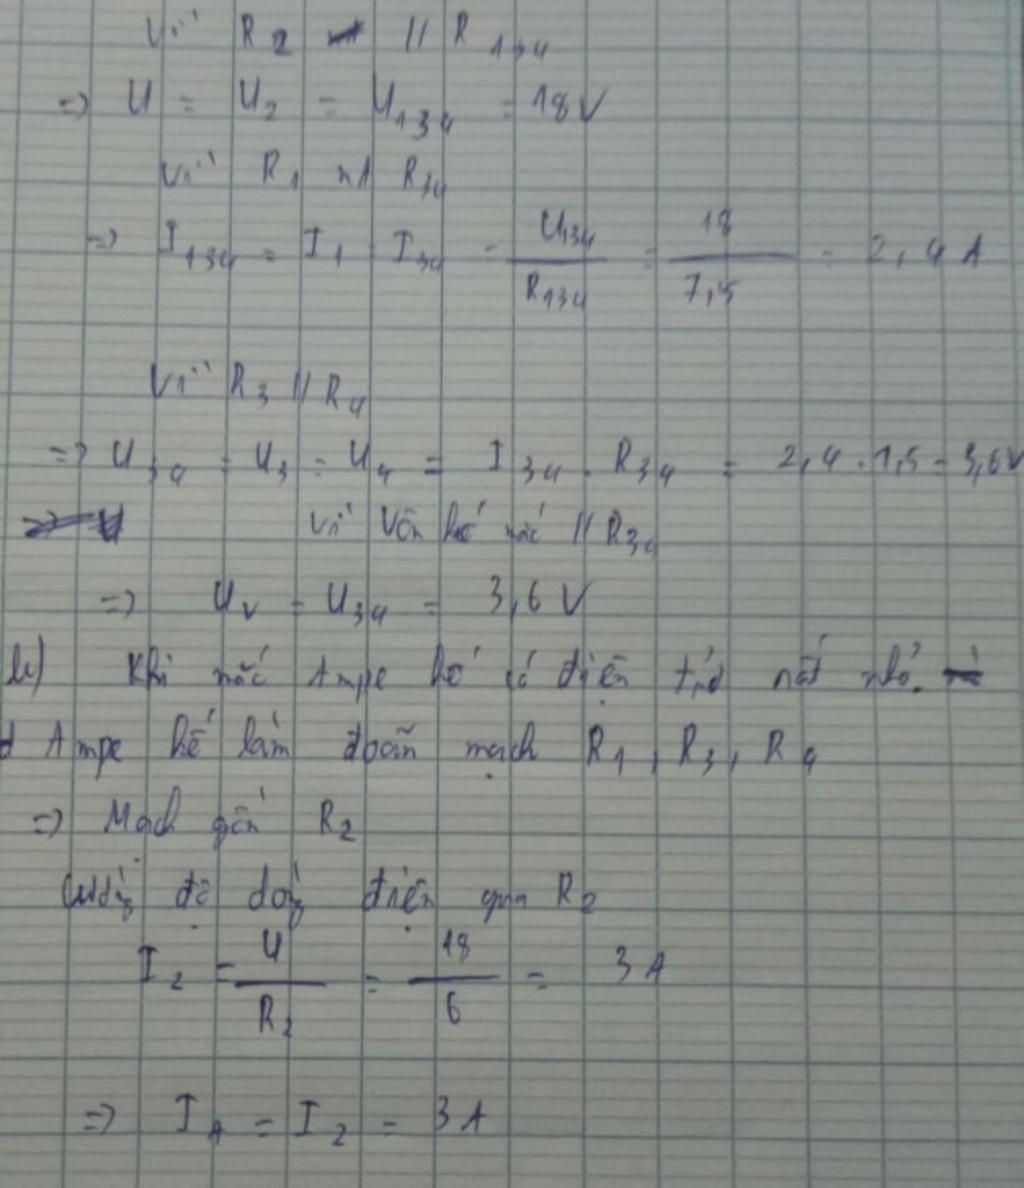 Vì R2 // R134
=> U = U2 = U134 = 18V
Vì R1 nt R34
=> I134 = I1 = I34 = U134 / R134 = 18 / 7,5 = 2,4 A
Vì R3 // R4
=> U34 = U3 = U4 = I34 . R34 = 2,4 . 1,5 = 3,6V
Vì Vôn kế mắc // R34
=> UV = U34 = 3,6 V
b) Khi mắc Ampe kế có điện trở rất nhỏ.
Ampe kế làm đoãn mạch R1, R3, R4
=> Mạch gồm R2
Cường độ dòng điện qua R2
I2 = U / R2 = 18 / 6 = 3 A
=> IA = I2 = 3 A